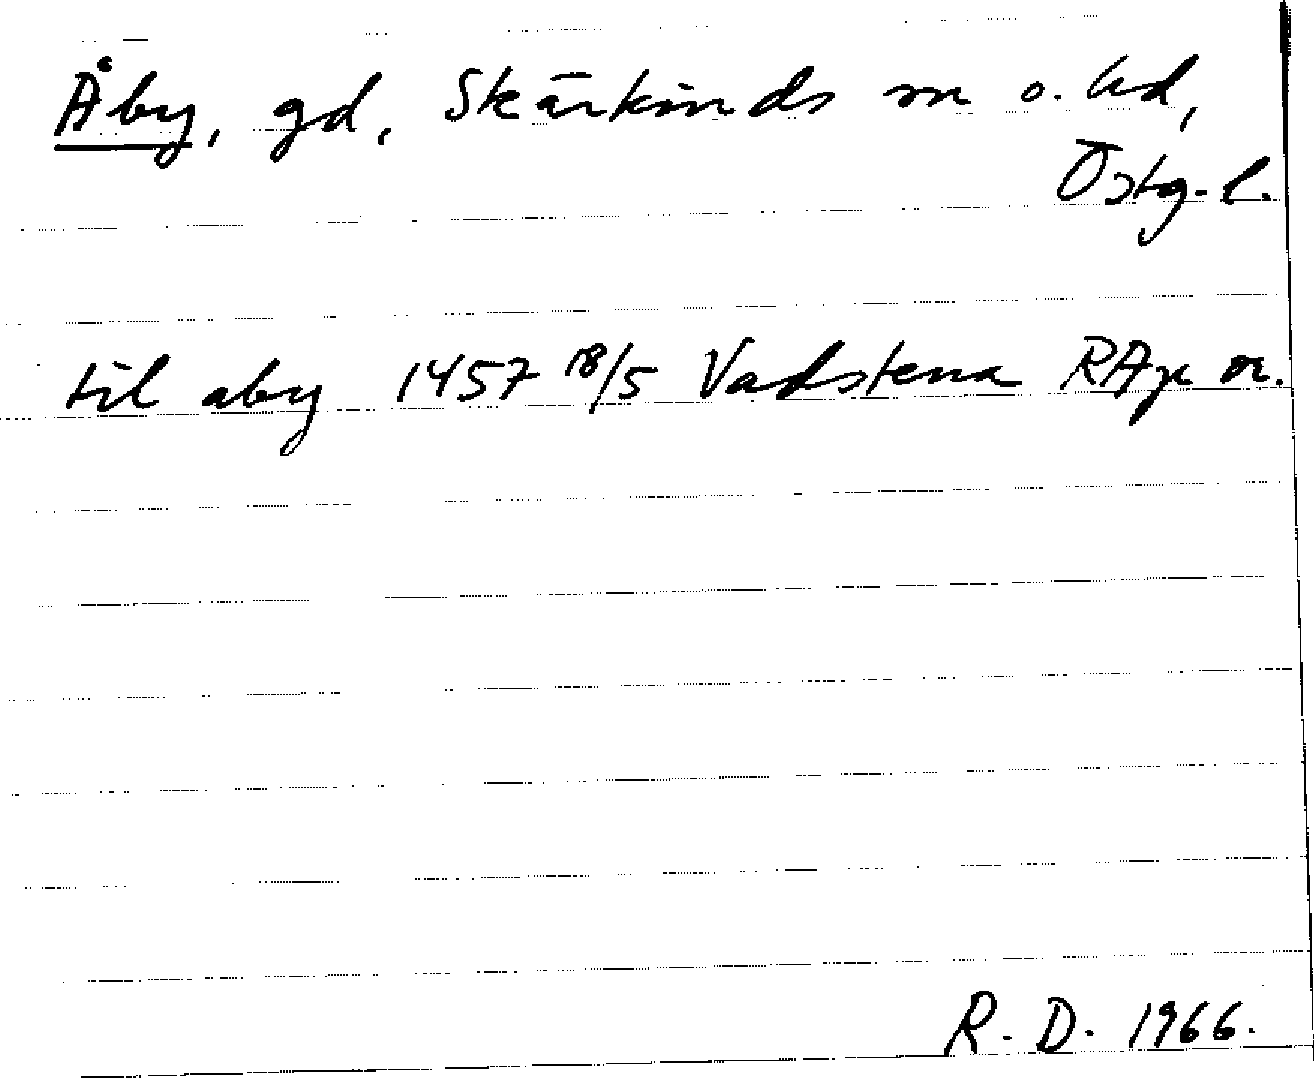 Åby, gd, Skärkinds sn o. hd,
Östg. l.
til aby 1457 18/5 Vadstena RAp or.
R. D. 1966.